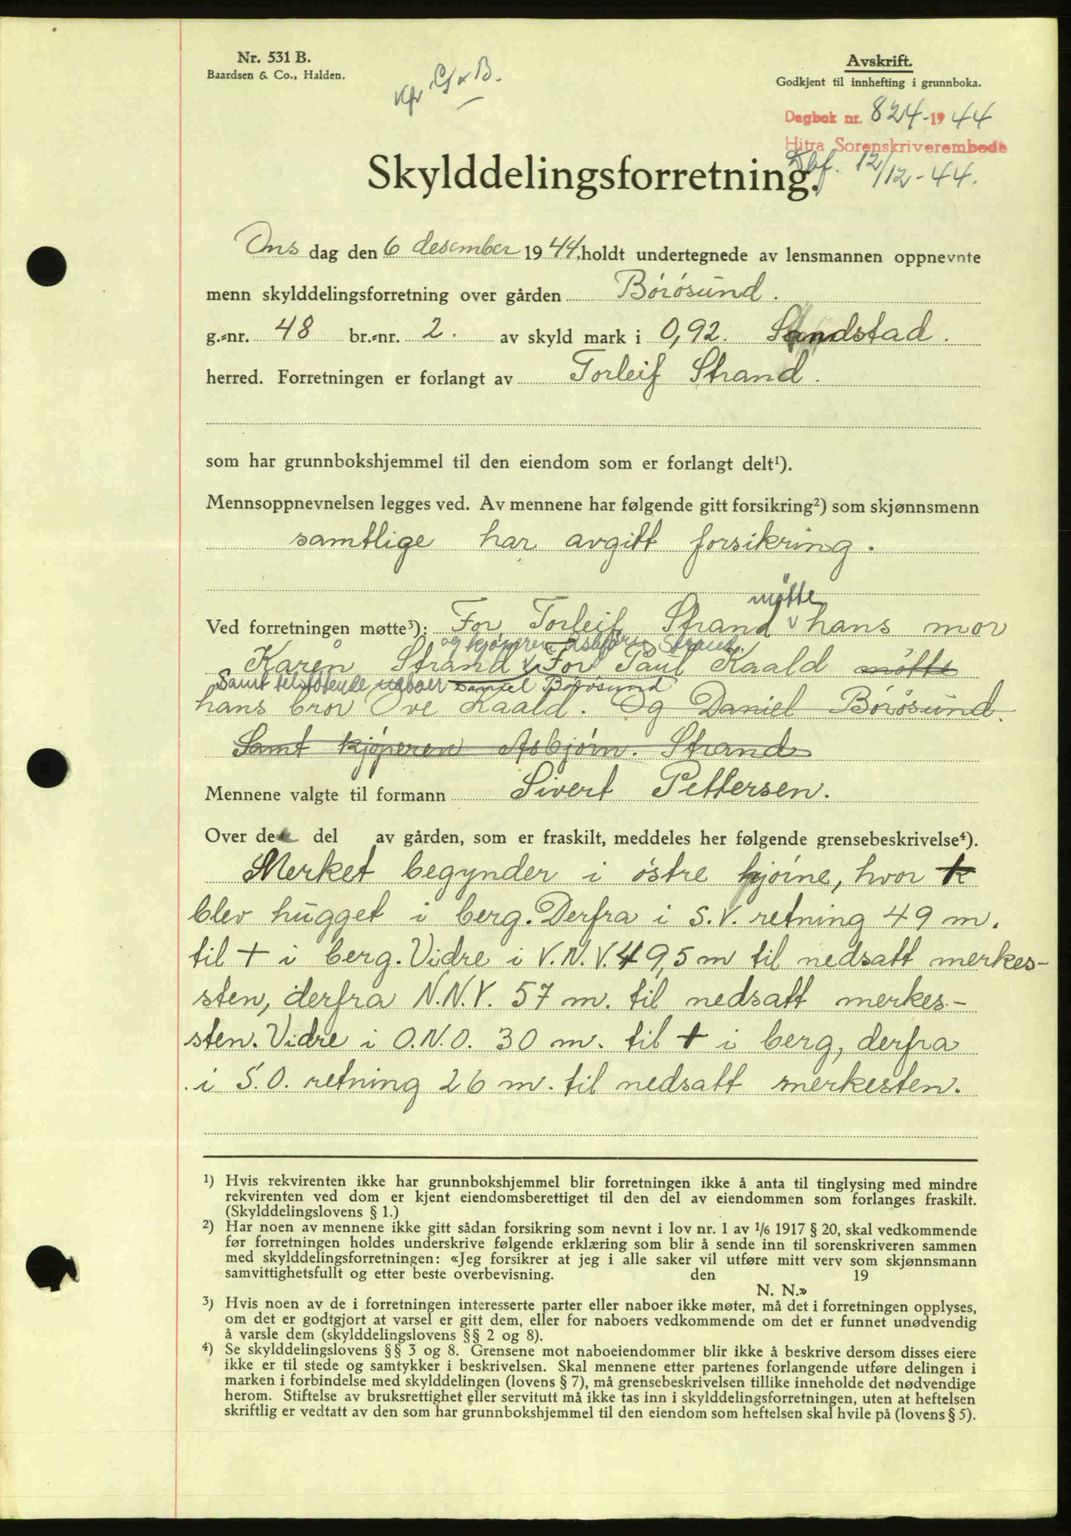 Nr. 531 B.
Baardsen & Co., Halden.
Kfr G. & B.
Avskrift.
Godkjent til innhefting i grunnboka.
Dagbok nr. 824-1944
Hitra Sorenskriverembede
Dbf. 12/12-44.
Skylddelingsforretning.
Ons dag den 6 desember 1944, holdt undertegnede av lensmannen oppnevnte
menn skylddelingsforretning over gården Börösund.
g.-nr. 48 br.-nr. 2. av skyld mark i 0,92. Sandstad.
herred. Forretningen er forlangt av Torleif Strand.
som har grunnbokshjemmel til den eiendom som er forlangt delt¹).
Mennsoppnevnelsen legges ved. Av mennene har følgende gitt forsikring²) som skjønnsmenn
samtlige har avgitt forsikring.
møtte
Ved forretningen møtte³): For Torleif Strand v hans mor
og kjøperen Asbjörn Strand.
Karen Strand v For Paul Kaald møtte
Samt tilstøtende naboer Daniel Börösund
hans bror Ove Kaald. Og Daniel Börösund.
Samt kjøperen Asbjørn. Strand
Mennene valgte til formann Sivert Pettersen.
Over de del av gården, som er fraskilt, meddeles her følgende grensebeskrivelse⁴).
Merket begynder i östre hjörne, hvor +
blev hugget i berg. Derfra i S.V. retning 49 m.
til + i berg. Vidre i V.N.V. 49,5 m til nedsatt merkes-
sten, derfra N.N.V. 57 m. til nedsatt merkes-
sten. Vidre i O.N.O. 30 m. til + i berg, derfra
i S.O. retning 26 m. til nedsatt merkesten.
¹) Hvis rekvirenten ikke har grunnbokshjemmel blir forretningen ikke å anta til tinglysing med mindre
rekvirenten ved dom er kjent eiendomsberettiget til den del av eiendommen som forlanges fraskilt.
(Skylddelingslovens § 1.)
²) Har noen av mennene ikke gitt sådan forsikring som nevnt i lov nr. 1 av 1/6 1917 § 20, skal vedkommende
før forretningen holdes underskrive følgende erklæring som blir å sende inn til sorenskriveren sammen
med skylddelingsforretningen: «Jeg forsikrer at jeg i alle saker vil utføre mitt verv som skjønnsmann
samvittighetsfullt og etter beste overbevisning. den 19
N. N.»
³) Hvis noen av de i forretningen interesserte parter eller naboer ikke møter, må det i forretningen opplyses,
om det er godtgjort at varsel er gitt dem, eller for naboers vedkommende om det er funnet unødvendig
å varsle dem (skylddelingslovens §§ 2 og 8).
⁴) Se skylddelingslovens §§ 3 og 8. Grensene mot naboeiendommer blir ikke å beskrive dersom disses eiere
ikke er til stede og samtykker i beskrivelsen. Skal mennene etter partenes forlangende utføre delingen i
marken i forbindelse med skylddelingen (lovens § 7), må grensebeskrivelsen tillike inneholde det nødvendige
herom. Stiftelse av bruksrettighet eller servitutt må ikke tas inn i skylddelingsforretningen, uten at heftelsen
skriftlig er vedtatt av den som har grunnbokshjemmel til den eiendom som heftelsen skal hvile på (lovens § 5).